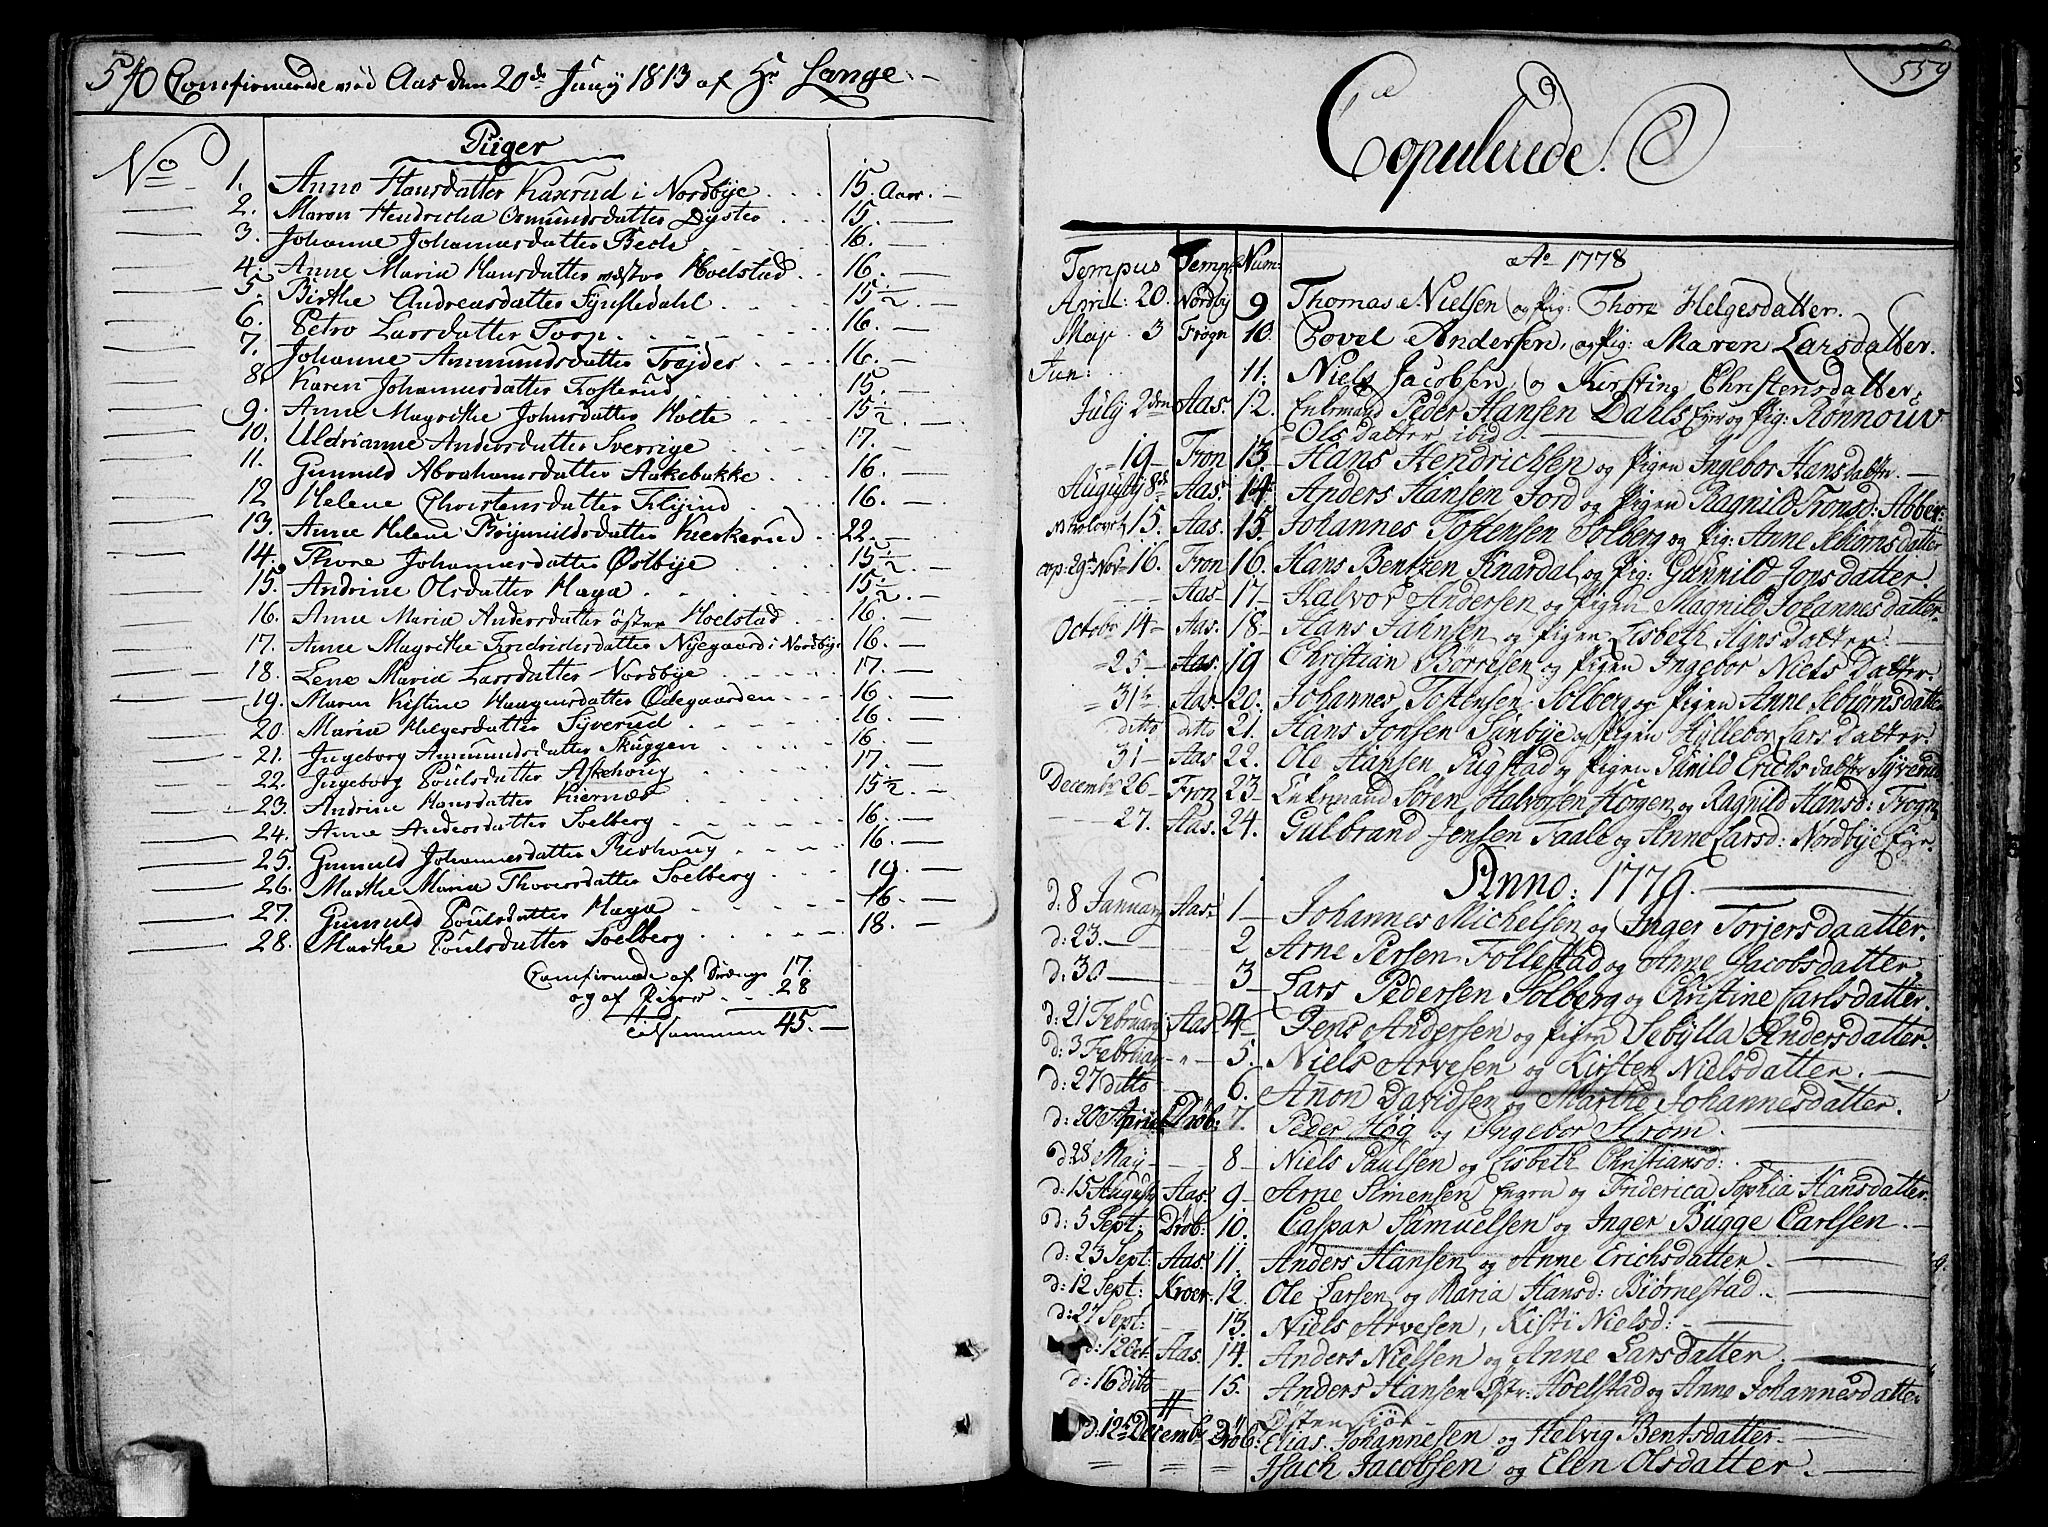 540 Confirmerede ved Aas den 20de Juny 1813 af Hr Lange.
Piger
No 1. Anne Hansdatter Kaxrud i Nordbye 15 Aar.
2. Maren Hendricha Osmundsdatter Dyster 15.
3. Johanne Johannesdatter Bede 16.
4. Anne Maria Hansdatter vestre Hoelstad 16.
5. Birthe Andreasdatter Synstedahl 15 1/2
6. Petro Larsdatter Torp 16.
7. Johanne Ammundsdatter Trojder 16.
8. Karen Johannesdatter Fosterud 15.
9. Anne Magrethe Johnsdatter Holte 15 1/2
10. Uldrianne Andersdatter Sverrige 17.
11. Gunnild Abrahamsdatter Aakebakke 16.
12 Helene Christensdatter Flyjnd 16.
13. Anne Helene Brijnnildsdatter Kierkerud 22.
14. Thore Johannesdatter Østbÿe 15 1/2
15. Andrine Olsdatter Haga 15 1/2
16. Anne Maria Andersdatter öster Hoelstad 16.
17. Anne Magrethe Fredrichsdatter Nÿegaard i Nordbÿe 16.
18. Lene Maria Larsdatter Nordbÿe 17.
19. Maren Kistine Haagensdatter Ødegaarden 16.
20. Maria Helgesdatter Syverud 16.
21. Ingeborg Ammundsdatter Skuggen 16.
22. Ingeborg Poulsdatter Askehoug 17.
23. Andrine Hansdatter Kiernæs 15 1/2
24. Anne Andersdatter Solberg 16.
25. Gunnild Johannesdatter Reshoug 16.
26. Marthe Maria Thoresdatter Solberg 19
27. Gunnild Poulsdatter Haga 16
28. Marthe Poulsdatter Solberg 18.
Confirmerede af Drenge 17.
og af Piger 28
Tilsammen 45.
559
Copulerede.
Ao 1778
Tempus Templ: Num:
April: 20. Nordby 9 Thomas Nielsen og Pig: Thore Helgesdatter.
Maji 3 Frogn 10. Povel Andersen, og Pig: Maren Larsdatter.
Jun: 11. Niels Jacobsen, og Kirsting Christensdatter.
July 2den Aas. 12. Enkemand Peder Hansen Dahls Eyer og Pig: Ronnouv
Olsdatter ibid
19 Fron 13. Hans Hendrichsen og Pigen Ingebor Hansdatter.
Augusty 8de Aas. 14 Anders Hansen Ford og Pigen Ragnild Tronsd: Abber:
15. Aas. 15. Johannes Tostensen Solberg og Pig: Anne Sebiørnsdatter
16. Fron 16. Hans Bentzen Knardal og Pig: Gunnild Jonsdatter.
Aas 17. Halvor Andersen og Pigen Magnild Johannesdatter.
Octobr 14 Aas. 18. Hans Jahnsen og Pigen Lisbeth Hansdatter.
25 Aas. 19 Christian Børresen og Pigen Ingebor Nielsdatter.
31te Aas 20. Johannes Tostensen Solberg og Pigen Anne Sebiørnsdatter
ditto ditto 21. Hans Jonsen Sunbÿe og Pigen Hyllebor Larsdatter.
31 Aas 22. Ole Hansen Rugstad og Pigen Gunild Erichsdatter Syverud
Decembr 26 Fron 23 Enkemand Soren Halvorsen Horgen og Ragnild Hansd: Frogn
27. Aas. 24. Gulbrand Jensen Faale og Anne Larsd: Nordbÿe Eyr.
Anno: 1779.
d: 8 January Aas. 1 Johannes Michelsen og Inger Torjersdaatter.
d: 23. 2 Arne Persen Follestad og Anne Jacobsdatter.
d: 30 3 Lars Pedersen Solberg og Christine Carlsdatter.
d: 21 February Aas 4 Jens Andersen og Pigen Sebÿlla Andersdatter.
d: 3 February 5. Niels Arvesen og Kirsten Nielsdatter.
d: 27 ditto 6. Anon Davidsen og Marthe Johannesdatter.
d: 20 April Drøb: 7. Peder Høÿ og Ingebor Strøm.
d 28 May 8 Niels Paulsen og Lisbeth Christiansd:
d: 15 August Aas. 9 Arne Simensen Engen og Friderica Sophia Hansdatter.
d: 5 Sept: Drøb: 10. Caspar Samuelsen og Inger Bugge Carlsen.
d: 23 Sept: Aas. 11. Anders Hansen og Anne Erichsdatter.
d: 12 Sept: Kroer 12. Ole Larsen og Maria Hansd: Biørnestad.
d: 27 Sept: 13. Niels Arvesen, Kisti Nielsd:
d: 12 Oct. Aas. 14. Anders Nielsen og Anne Larsdatter.
d: 16 ditto 15. Anders Hansen Østr: Hoelstad og Anne Johannesdatter
d: 12te Decembr Drøb: Elias Johannesen og Helvig Bentsdatter.
Isach Jacobsen og Elen Olsdatter.